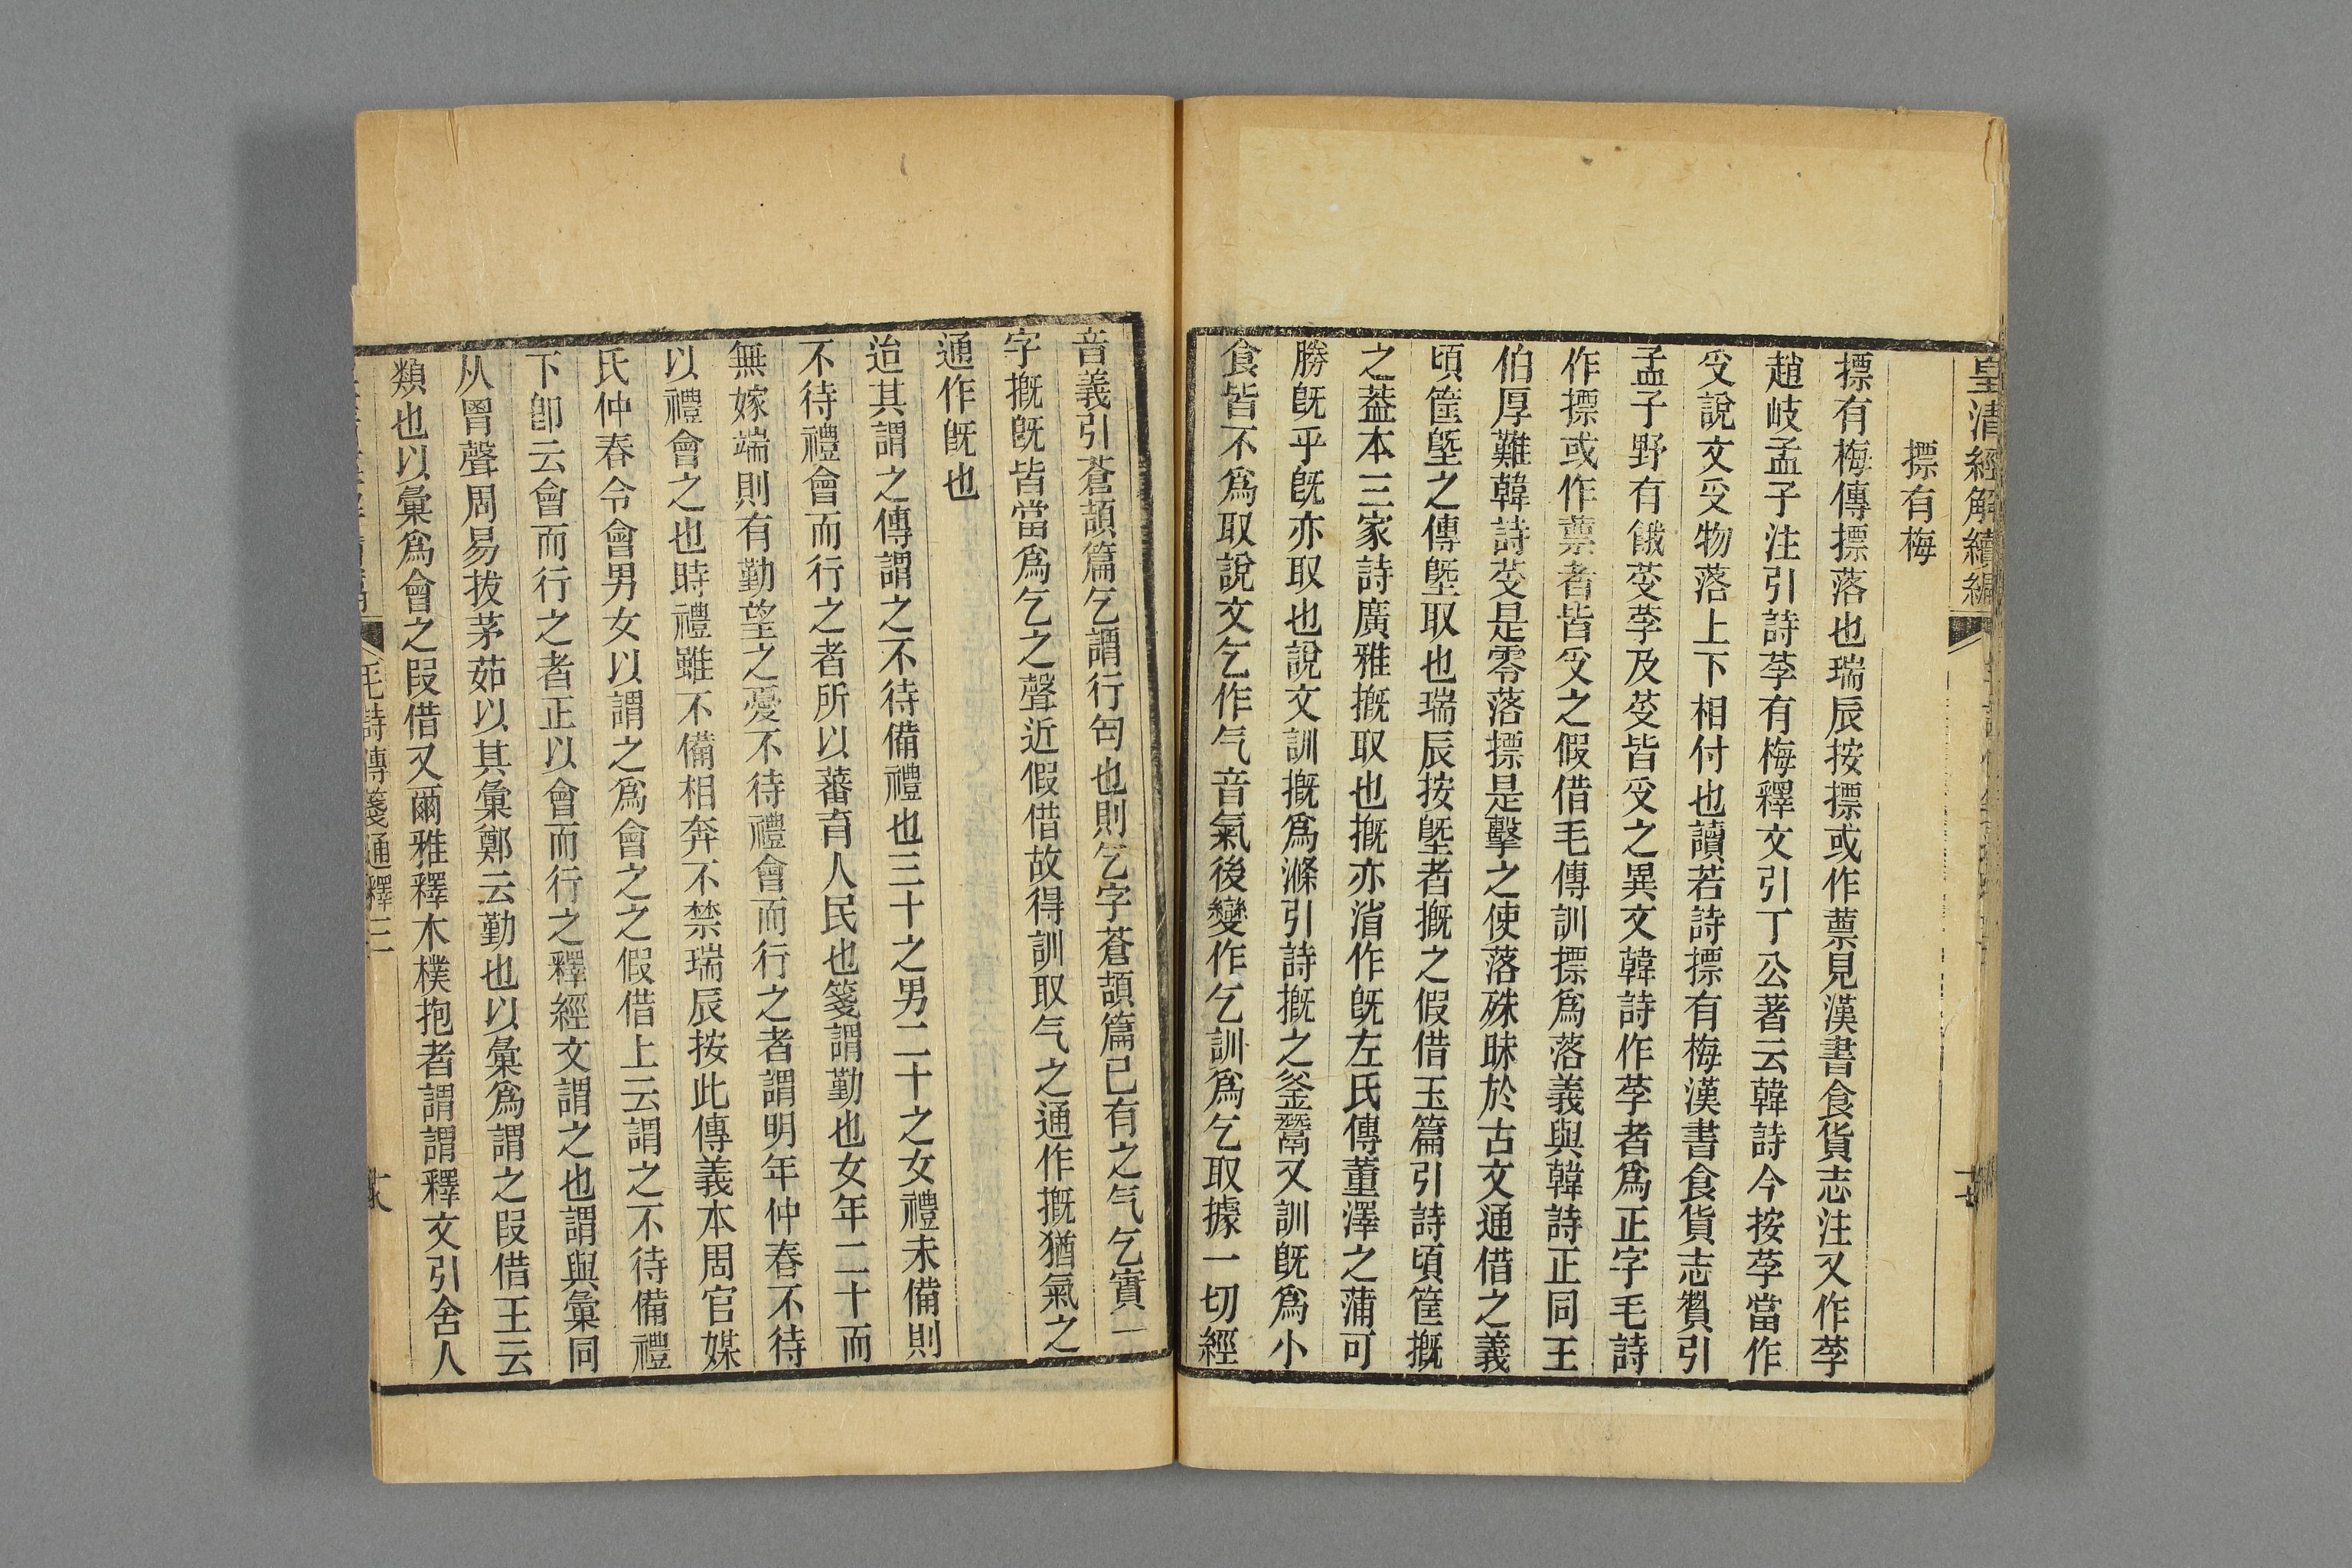 皇清經解續編
摽有梅
摽有梅傳摽落也瑞辰按摽或作蔈見漢書食貨志注又作莩
趙岐孟子注引詩莩有梅釋文引丁公著云韓詩今按莩當作
𠬪說文𠬪物落上下相付也讀若詩摽有梅漢書食貨志贊引
孟子野有餓荽莩及荽皆𠬪之異文韓詩作莩者爲正字毛詩
作摽或作蔈者皆𠬪之假借毛傳訓摽爲落義與韓詩正同王
伯厚難韓詩荽是零落摽是擊之使落殊昧於古文通借之義
頃筐塈之傳塈取也瑞辰按塈者摡之假借玉篇引詩頃筐摡
之葢本三家詩廣雅摡取也摡亦消作旣左氏傳董澤之蒲可
勝旣乎旣亦取也說文訓摡爲滌引詩摡之釜鬵又訓旣爲小
食皆不爲取說文乞作气音氣後變作乞訓爲乞取據一切經
音義引蒼頡篇乞謂行匃也則乞字蒼頡篇已有之气乞實一
字摡旣皆當爲乞之聲近假借故得訓取气之通作摡猶氣之
通作旣也
迨其謂之傳謂之不待備禮也三十之男二十之女禮未備則
不待禮會而行之者所以蕃育人民也箋謂勤也女年二十而
無嫁端則有勤望之憂不待禮會而行之者謂明年仲春不待
以禮會之也時禮雖不備相奔不禁瑞辰按此傳義本周官媒
氏仲春令會男女以謂之爲會之之假借上云謂之不待備禮
下卽云會而行之者正以會而行之釋經文謂之也謂與彙同
从胃聲周易拔茅茹以其彙鄭云勤也以彙爲謂之叚借王云
類也以彙爲會之叚借又爾雅釋木樸抱者謂謂釋文引舍人
毛詩傳箋通釋三